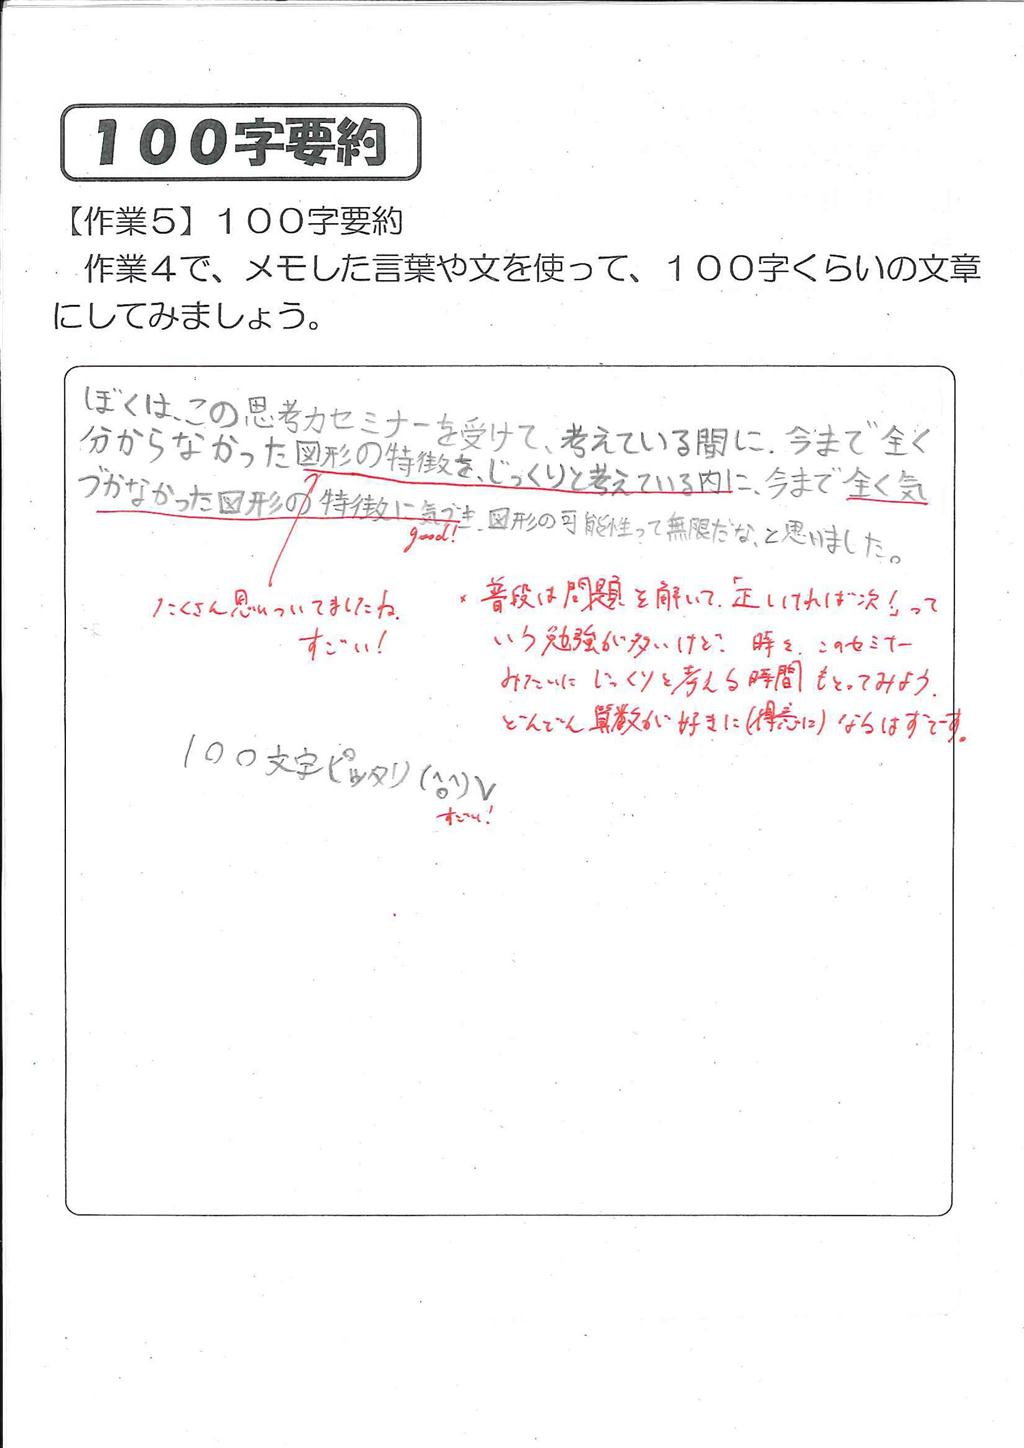 100字要約
【作業５】１００字要約
作業４で、メモした言葉や文を使って、１００字くらいの文章
にしてみましょう。
ぼくは、この思考力セミナーを受けて、考えている間に、今まで全く
分からなかった図形の特徴を、じっくりと考えている内に、今まで全く気
づかなかった図形の特徴に気づき、図形の可能性って無限だな、と思いました。
good!
たくさん思いついてましたね。
すごい!
* 普段は問題を解いて、「正しければ次!」って
いう勉強が多いけど、時々、このセミナー
みたいにじっくりと考える時間もとってみよう。
どんどん算数が好きに(得意に)なるはずです。
100文字ピッタリ(^o^)V
すごい!